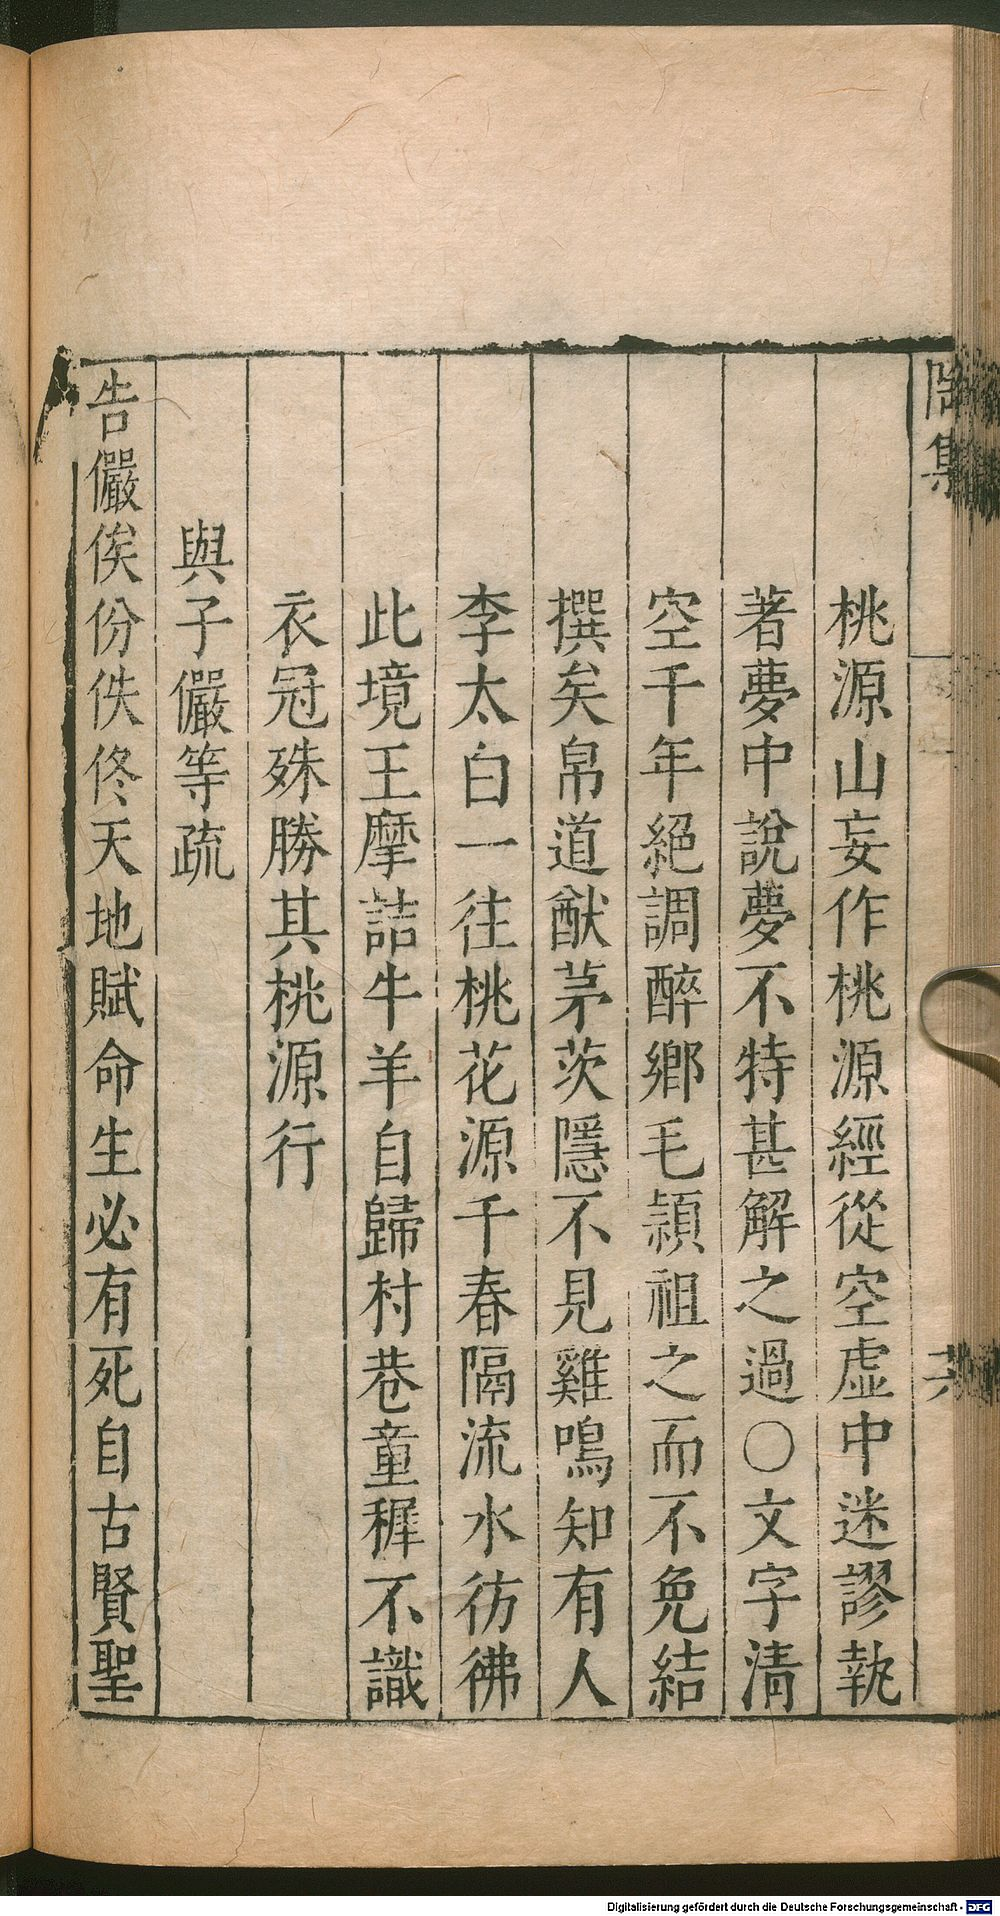 陶集
桃源山妄作桃源經從空虛中迷謬執
著夢中說夢不特甚解之過○文字清
空千年絕調醉鄉毛頴祖之而不免結
撰矣帛道猷茅茨隱不見雞鳴知有人
李太白一往桃花源千春隔流水彷彿
此境王摩詰牛羊自歸村巷童穉不識
衣冠殊勝其桃源行
與子儼等疏
告儼俟份佚佟天地賦命生必有死自古賢聖
Digitalisierung gefördert durch die Deutsche Forschungsgemeinschaft - DFG